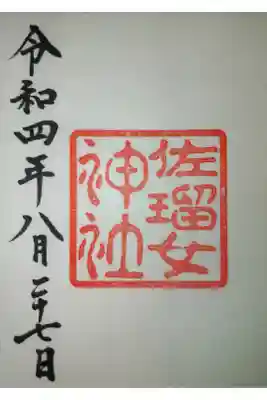 佐瑠女
神社
令和四年八月二十七日